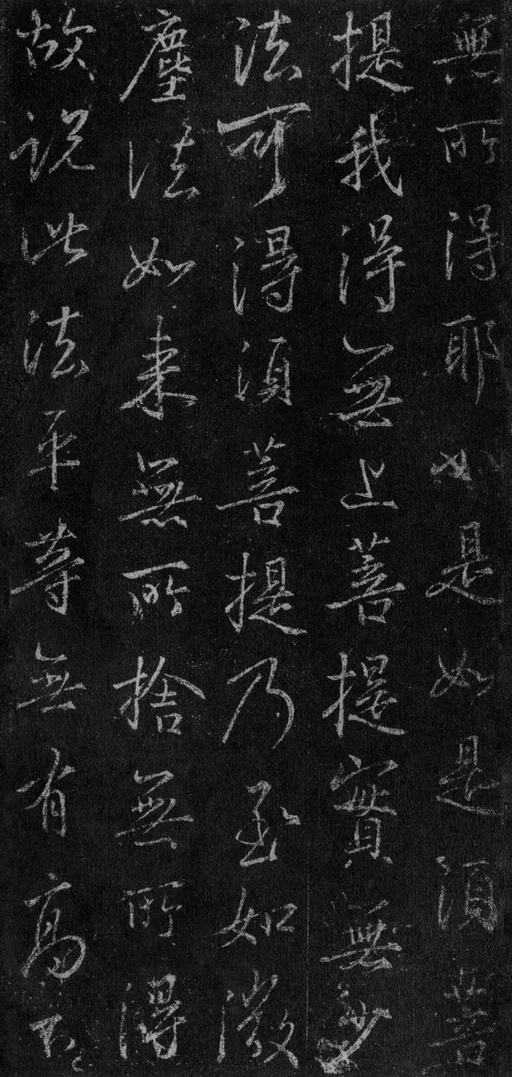 無所得耶如是如是須菩
提我得無上菩提實無少
法可得須菩提乃至如微
塵法如来無所捨無所得
故説此法平等無有高下